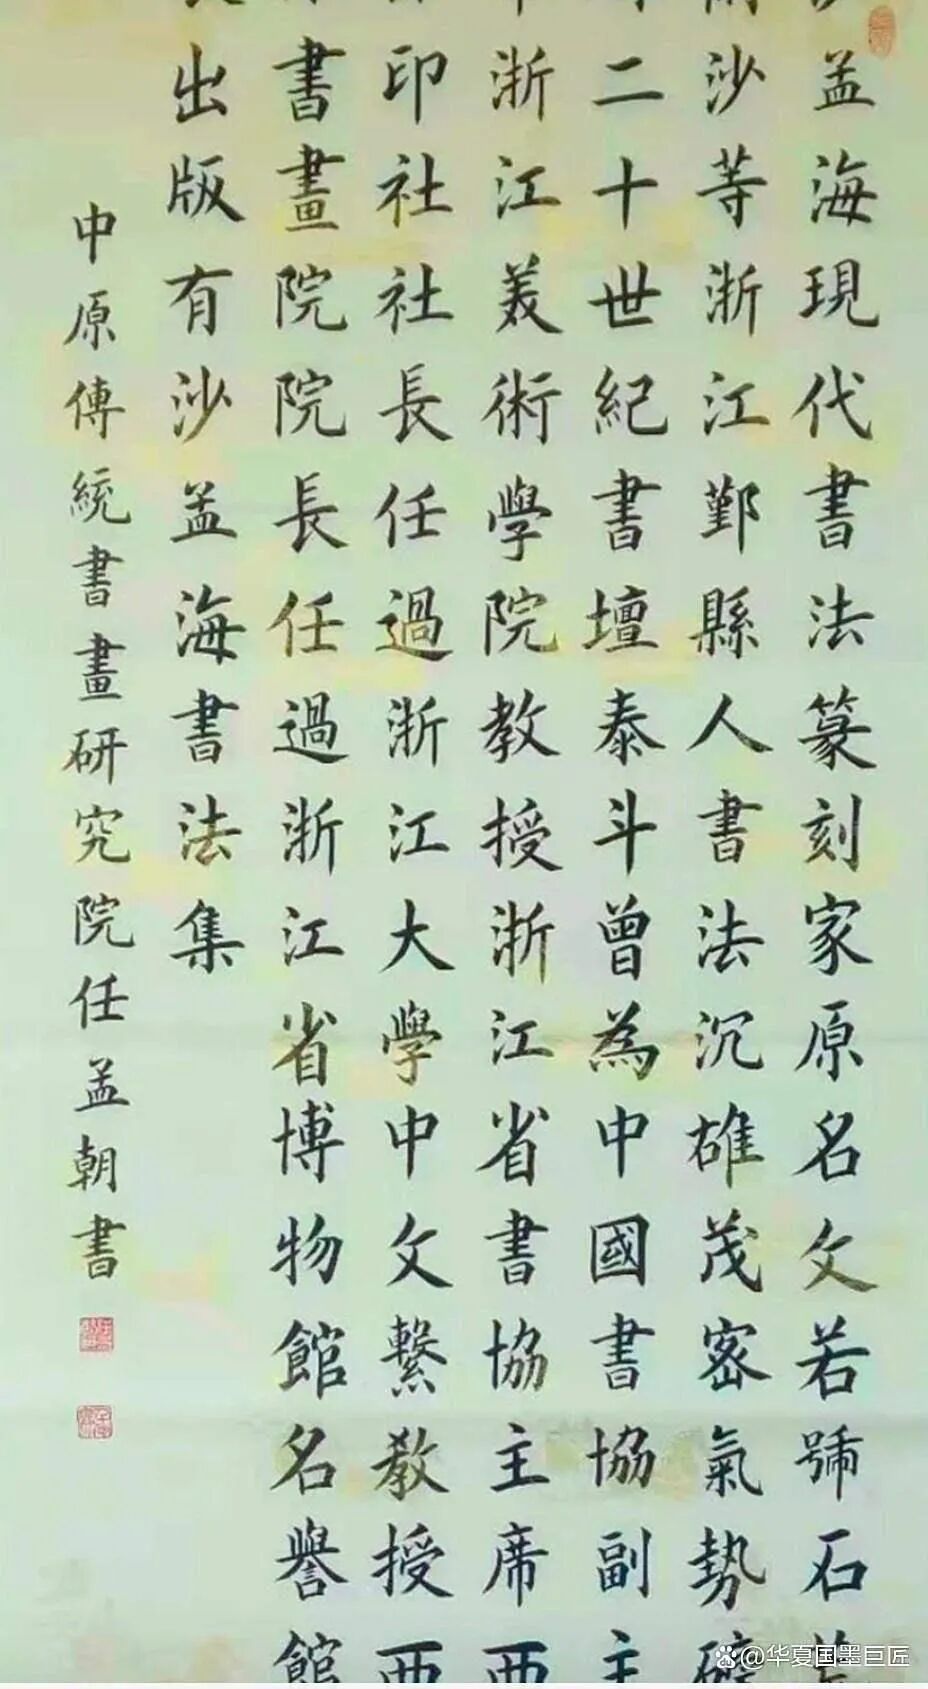 孟海現代書法篆刻家原名文若號石
沙等浙江鄞縣人書法沉雄茂密氣勢
二十世紀書壇泰斗曾為中國書協副主
浙江美術學院教授浙江省書協主席西
印社社長任過浙江大學中文繫教授西
書畫院院長任過浙江省博物館名譽館
出版有沙孟海書法集
中原傳統書畫研究院任孟朝書
@華夏国墨巨匠